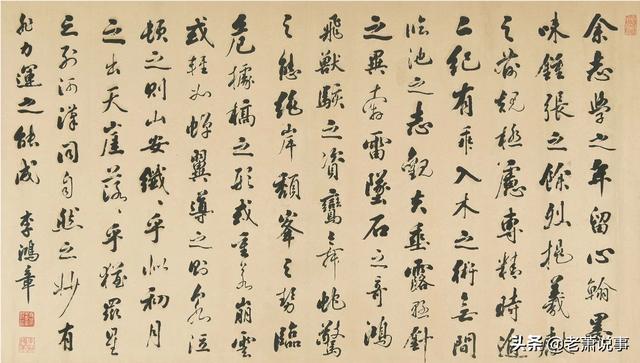 余志學之年留心翰墨
味鍾張之餘烈挹羲獻
之前規極慮專精時逾
二紀有乖入木之術無間
臨池之志觀夫垂露懸針
之異奔雷墜石之奇鴻
飛獸駭之資鸞舞蛇驚
之態絕岸頹峯之勢臨
危據槁之形或重若崩雲
或輕如蟬翼導之則泉注
頓之則山安纖〻乎似初月
之出天崖落〻乎猶眾星
之列河漢同自然之妙有
非力運之能成
李鴻章
头条@老萧说事